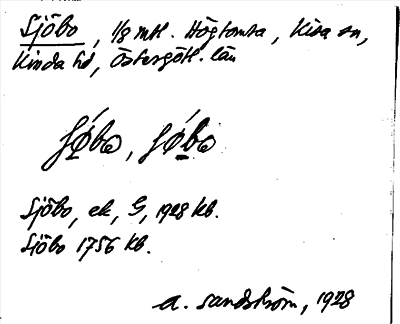 Sjöbo, 1/8 mtl. Högtomta, Kisa sn,
Kinda hd, Östergötl. län
Sjöbo, ek, G, 1928 kb.
Sjöbo 1756 kb.
A. Sandström, 1928